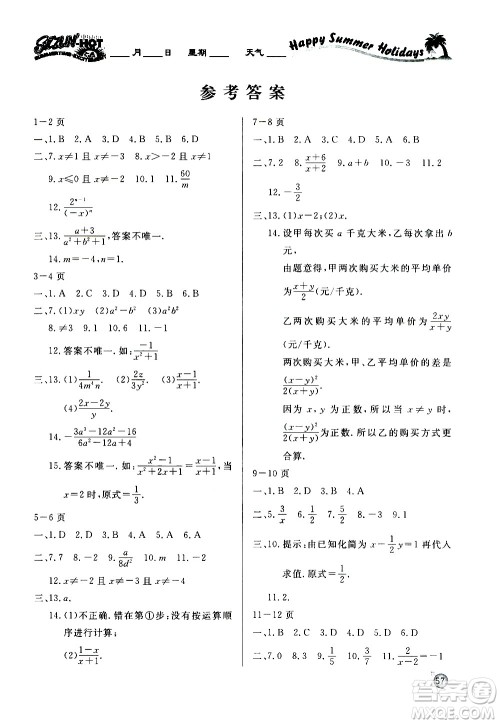 SUN HOT
____月____日 星期____ 天气____
Happy Summer Holidays
参考答案
1-2 页
一、1. B 2. A 3. D 4. A 5. B 6. D
二、7. x≠1 且 x≠-1 8. x≠1 且 x≠-3
9. x≤0 且 x≠-2 10. -1 11. 60/m
12. 2^(n-1)/(-x)^n
三、13. (a+3)/(a²+1), 答案不唯一.
14. m=-4, n=1.
3-4 页
一、1. B 2. A 3. D 4. C 5. C 6. D
二、7. (1)xy (2)a²-b² (3)a²b²
8. ≠3 9. 1 10. 1 11. -1
12. 答案不唯一. 如: -1/(x²+1)
三、13. (1) 1/(4m⁴n) (2) 2z/(3y²) (3) (x-1)/(x+1)
(4) (2x-2y)/y
14. -(3a³-12a)/(6a²-16)
15. 答案不唯一. 如: (x²-1)/(x²+2x+1)=(x-1)/(x+1), 当
x=2 时, 原式=1/3.
5-6 页
一、1. D 2. B 3. D 4. A 5. D 6. A
二、7. 7 8. -2 9. a/(8d²) 10. -1 11. 7
三、13. a.
14. (1)不正确. 错在第①步; 没有按运算顺
序进行计算;
(2) (1-x)/(x+1).
7-8 页
一、1. B 2. A 3. C 4. D 5. D 6. D
二、7. 2 8. (x+6)/(x+3) 9. x 10. -2 11. 0
12. -3/2
三、13. (1)x-2; (2)x.
14. 设甲每次买 a 千克大米, 乙每次购买 b
元.
由题意得, 甲两次购买大米的平均单价
为 (x+y)/2 (元/千克)
乙两次购买大米的平均单价为 2xy/(x+y)
(元/千克).
两次购买大米时, 甲、乙平均单价的差是
(x-y)²/(2(x+y))
因为 x、y 为正数, 所以当 x≠y 时,
(x-y)²/(2(x+y)) 也为正数. 所以乙的购买方式更
合算.
9-10 页
一、1. B 2. D 3. C 4. C
二、5. 3/x 6. x 7. 0 8. -1/2 9. 1
三、10. 提示: 由已知化简 x-1/x 再代入
求值. 原式=1/2.
11. 2.
11-12 页
一、1. B 2. D 3. D 4. A 5. C 6. D
57